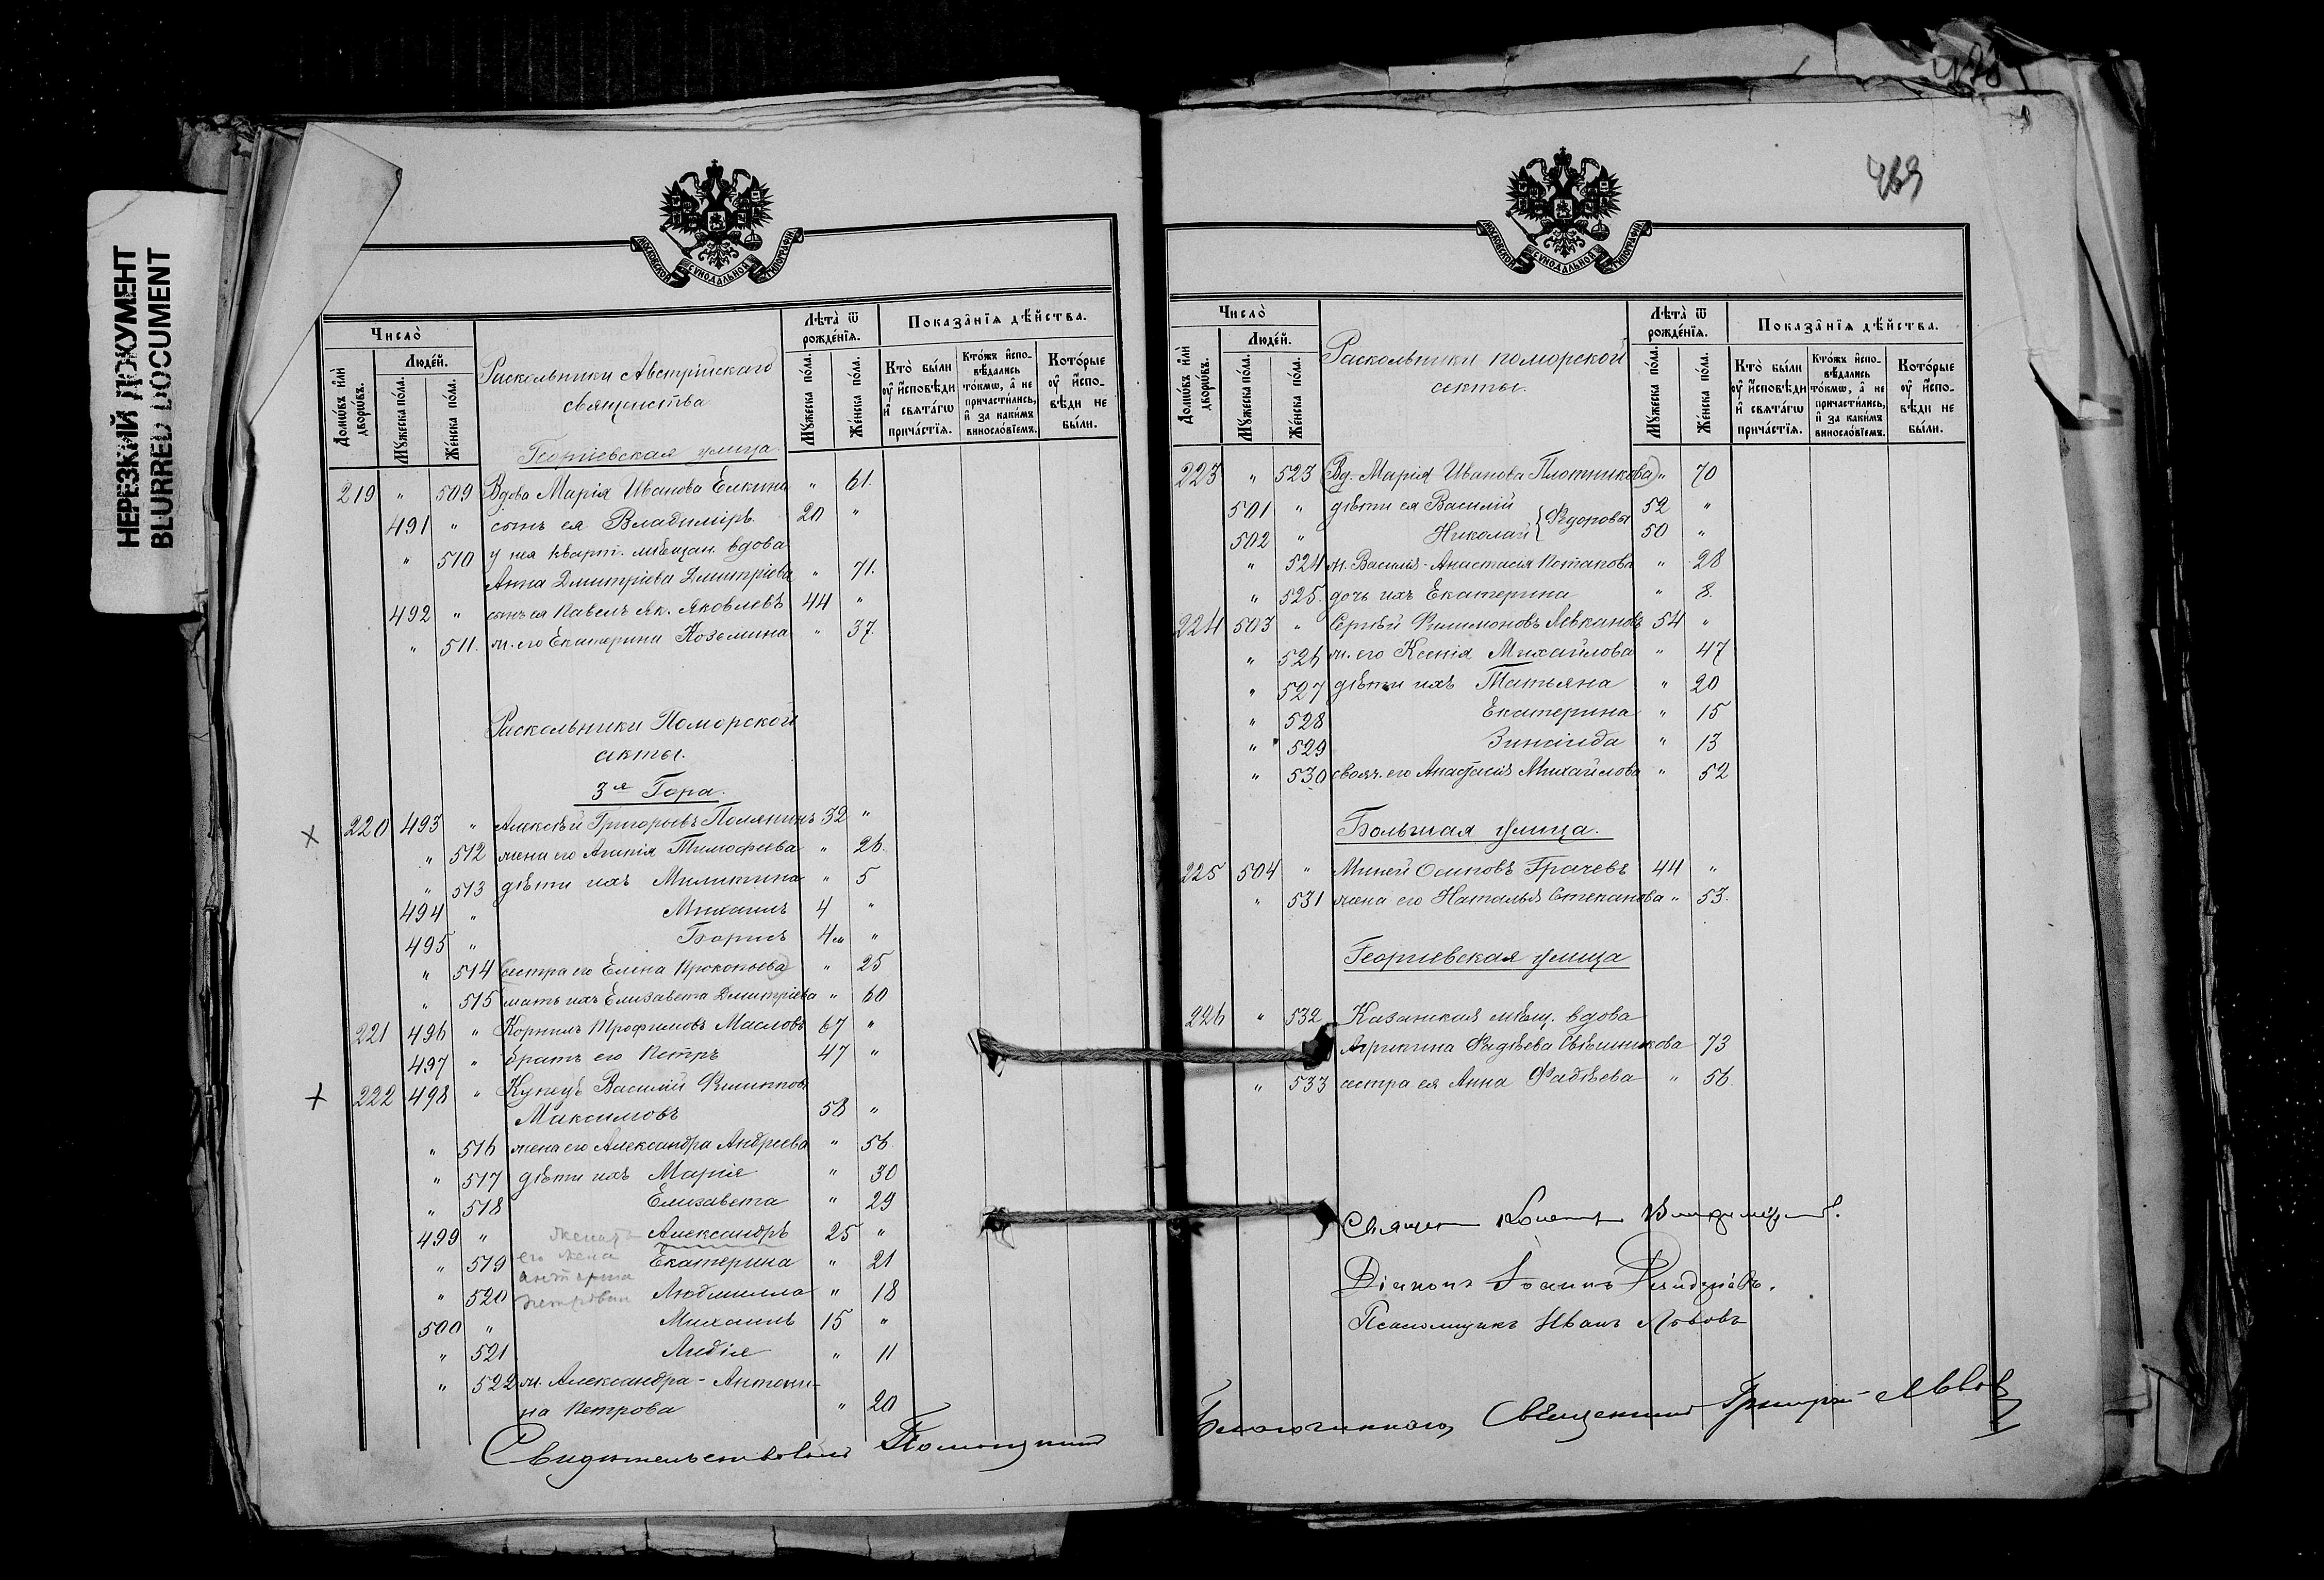 НЕРЕЗКИЙ ДОКУМЕНТ
BLURRED DOCUMENT
МОСКОВСКОЙ СУНОДАЛЬНОЙ ТИПОГРАФІИ
Число̀
Людéй.
Домѡ́въ и҆лѝ дворѡ́въ.
Мꙋ́жеска по́ла.
Же́нска по́ла.
Раскольники Австрійскаго
священства
Георгіевская улица
Лѣ́та ѿ рожде́нїѧ.
Мꙋ́жеска по́ла.
Же́нска по́ла.
Показа̑нїѧ дѣ́йства.
Кто̀ бы́ли оу҆ и҆сповѣди и҆ свѧта́гѡ прича́стїѧ.
Кто́жъ и҆спо-вѣ́дались то́кмѡ, а҆ не причасти́лись, и҆ за каки́мъ винослов́їемъ.
Кото́рые оу҆ и҆спо-вѣди не бы́ли.
219 " 509 Вдова Марія Иванова Елкина " 61.
491 " сынъ ея Владиміръ 20 "
" 510 у нея кварт. мѣщан. вдова
Анна Дмитріева Дмитріева " 71.
492 " сынъ ея Павелъ Як. Яковлевъ 44 "
" 511. ж. его Екатерина Козьмина " 37.
Раскольники Поморской
секты.
3я Гора.
220 493 " Алексѣй Григорьевъ Полянинъ 32 "
" 512 жена его Агапія Тимофеева " 26.
" 513 дѣти ихъ Милитина " 5
494 " Михаилъ 4 "
495 " Борисъ 4м "
" 514 (сестра его Елена Прокопьева) " 25
" 515 мать ихъ Елизавета Дмитріева " 60
221 496 " Корнилъ Трофимовъ Масловъ 67 "
497 " братъ его Петръ 47 "
222 498 " Купецъ Василій Филипповъ
Максимовъ 58 "
" 516 жена его Александра Андреева " 56
" 517 дѣти ихъ Марія " 30
" 518 Елизавета " 29
499 " женатъ Александръ 25 "
" 519 его жена Екатерина " 21
" 520 Петровна Людмилла " 18
500 " Михаилъ 15 "
" 521 Лидія " 11
" 522 ж. Александра - Антони-
на Петрова " 20
Свидѣтельствовалъ Помощникъ
469
МОСКОВСКОЙ СУНОДАЛЬНОЙ ТИПОГРАФІИ
Число̀
Людéй.
Домѡ́въ и҆лѝ дворѡ́въ.
Мꙋ́жеска по́ла.
Же́нска по́ла.
Раскольники поморской
секты.
Лѣ́та ѿ рожде́нїѧ.
Мꙋ́жеска по́ла.
Же́нска по́ла.
Показа̑нїѧ дѣ́йства.
Кто̀ бы́ли оу҆ и҆сповѣди и҆ свѧта́гѡ прича́стїѧ.
Кто́жъ и҆спо-вѣ́дались то́кмѡ, а҆ не причасти́лись, и҆ за каки́мъ винослов́їемъ.
Кото́рые оу҆ и҆спо-вѣди не бы́ли.
223 " 523 (Вд. Марія Иванова Плотникова) " 70
501 " дѣти ея Василій 52 "
502 " Николай } Ѳедоровы 50 "
" 524 ж. Василія - Анастасія Потапова " 28
" 525. дочь ихъ Екатерина " 8.
224 503 " Сергѣй Филимоновъ Левкановъ 54 "
" 526 ж. его Ксенія Михайлова " 47
" 527 дѣти ихъ Татьяна " 20
" 528 Екатерина " 15
" 529 Зинаида " 13
" 530 своял. его Анастасія Михайлова " 52
Большая улица.
225 504 " Миней Осиповъ Грачевъ 44 "
" 531 жена его Наталья Степанова " 53.
Георгіевская улица
226 " 532 Казанская мѣщ. вдова
Агрипина Фадѣева Свѣшникова 73
" 533 сестра ея Анна Фадѣева " 56.
Діаконъ Іоаннъ
Псаломщикъ Иванъ Львовъ
Благочиннаго, Священникъ Григорій Львовъ